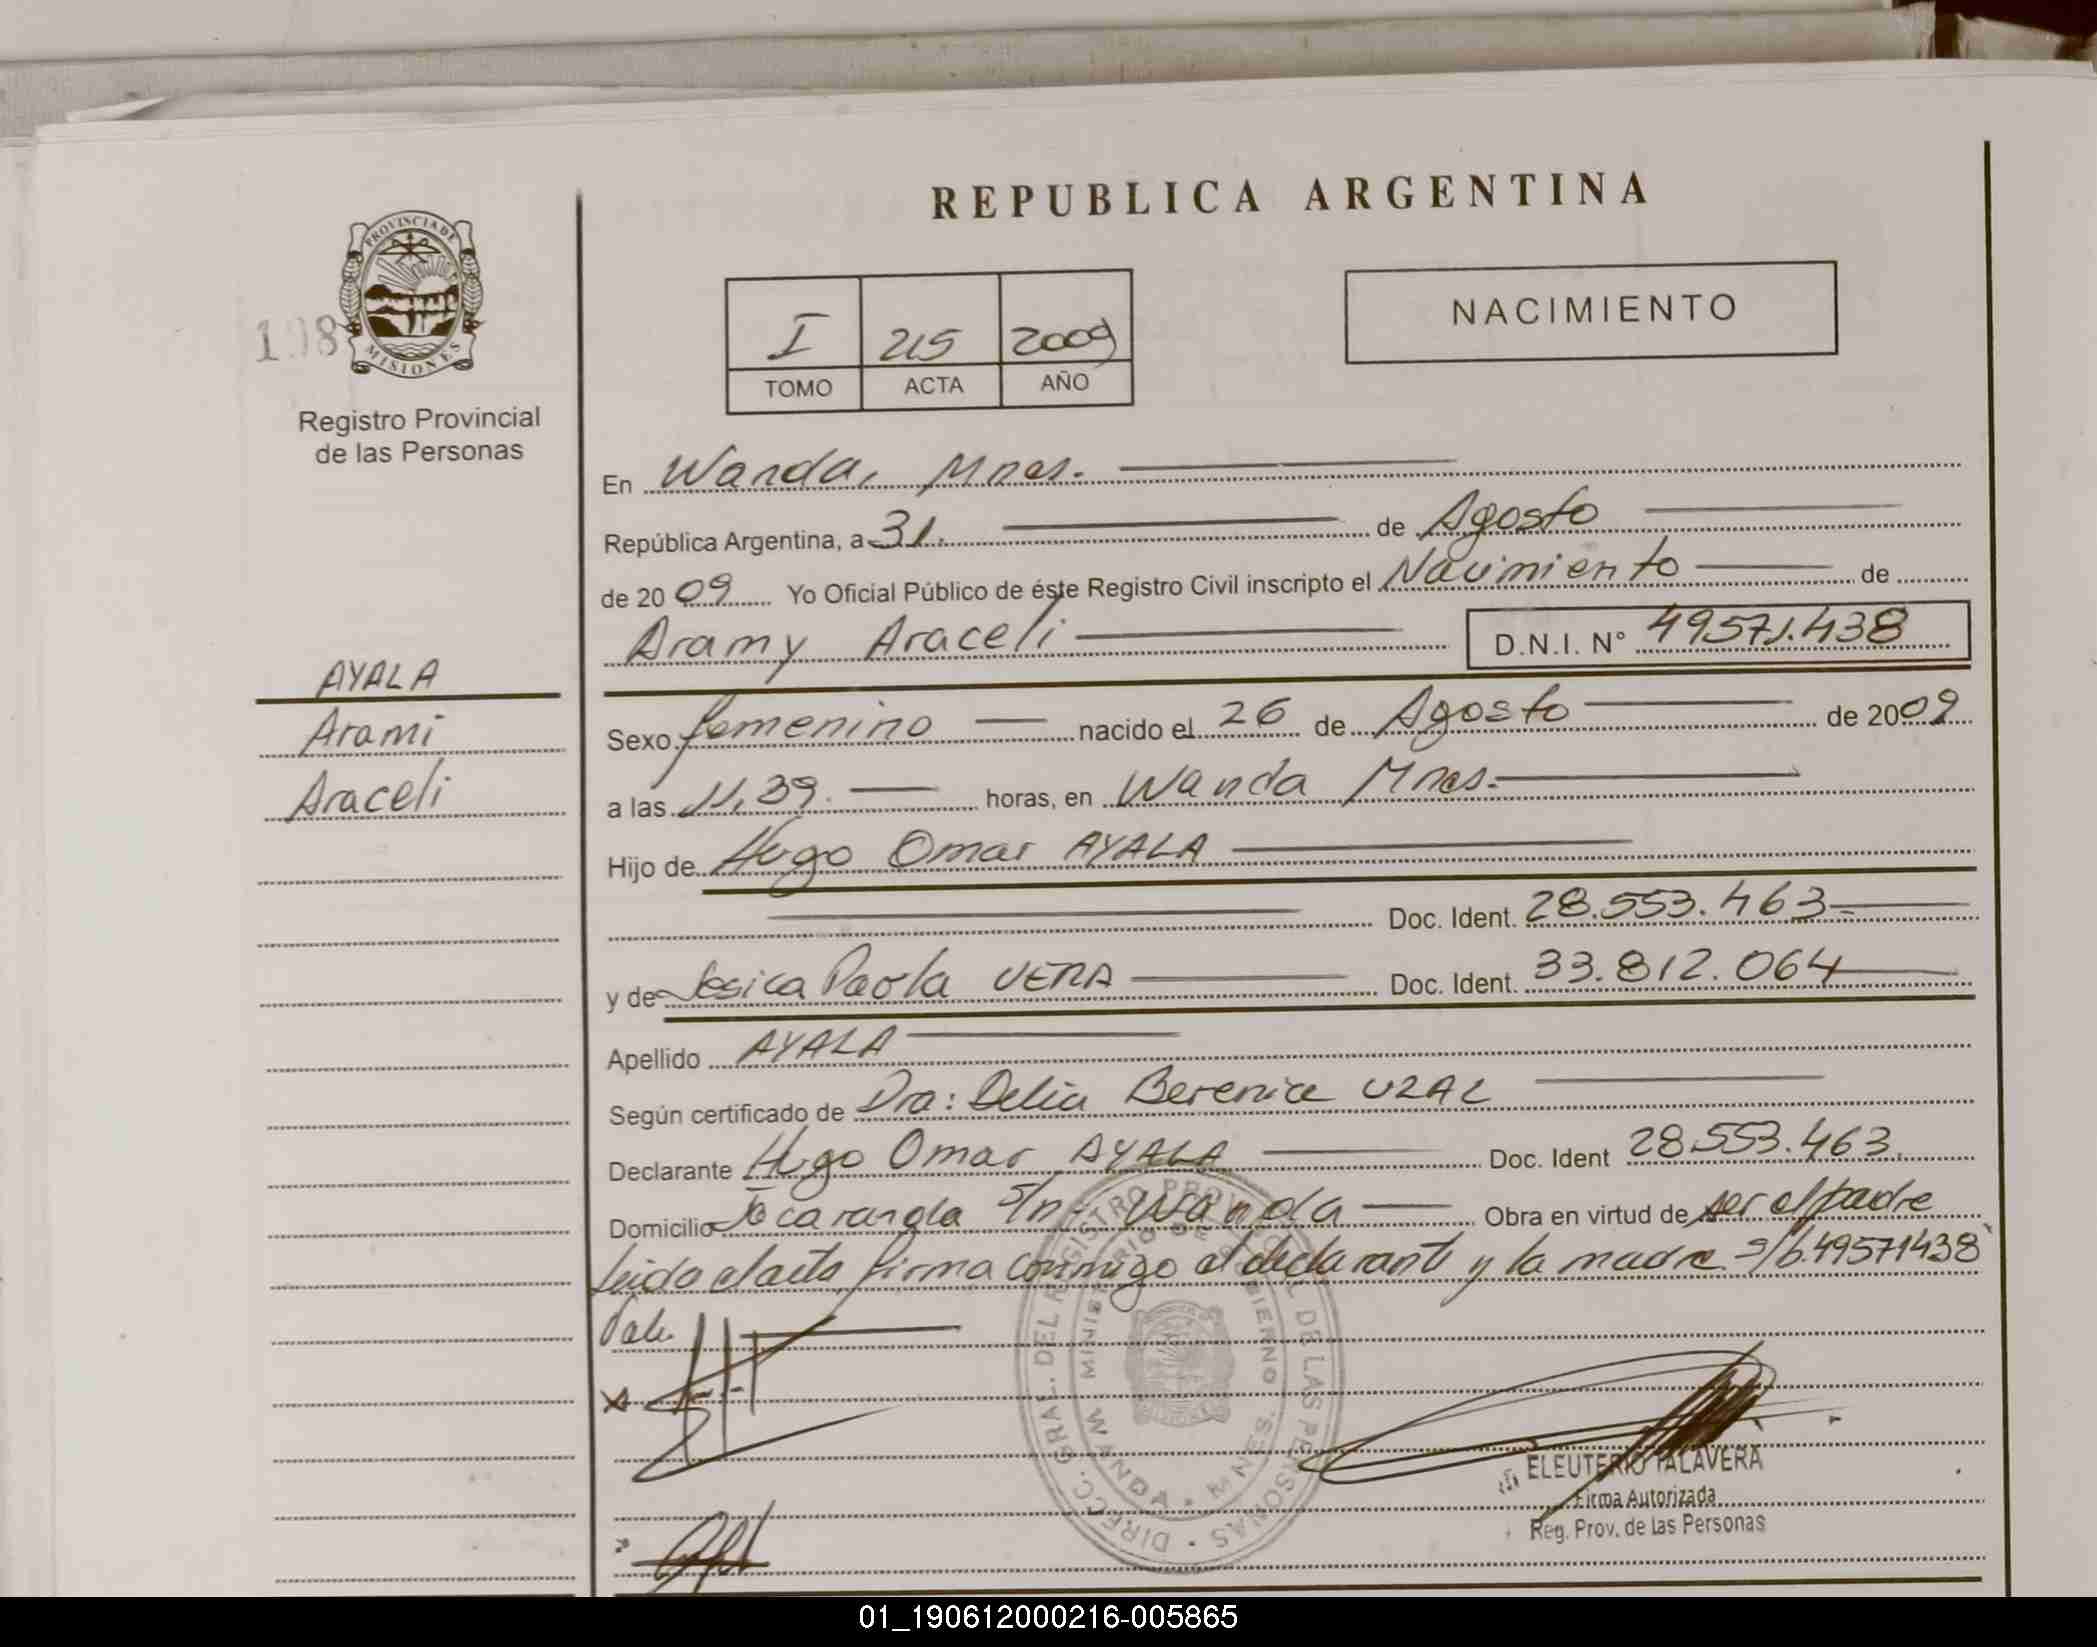 REPUBLICA ARGENTINA
PROVINCIA DE
MISIONES
Registro Provincial
de las Personas
I 215 2009
TOMO ACTA AÑO
NACIMIENTO
En Wanda, Mnes.
República Argentina, a 31. de Agosto
de 2009 Yo Oficial Público de éste Registro Civil inscripto el Nacimiento de
Aramy Araceli D.N.I. N° 49571.438
AYALA
Arami
Araceli
Sexo femenino nacido el 26 de Agosto de 2009
a las 11,39. horas, en Wanda Mnes.
Hijo de Hugo Omar AYALA
Doc. Ident. 28.553.463
y de Jesica Paola VERA Doc. Ident. 33.812.064
Apellido AYALA
Según certificado de Dra: Delia Berenice UZAL
Declarante Hugo Omar AYALA Doc. Ident 28.553.463.
Domicilio Jacaranda s/n - Wanda Obra en virtud de ser el padre
Leida el acta firma conmigo el declarante y la madre s/b.49571438
Vale.
DIRECC. GRAL. DEL REGISTRO PROVINCIAL DE LAS PERSONAS
MINISTERIO DE GOBIERNO
WANDA MNES.
ELEUTERIO TALAVERA
Firma Autorizada
Reg. Prov. de las Personas
01_190612000216-005865